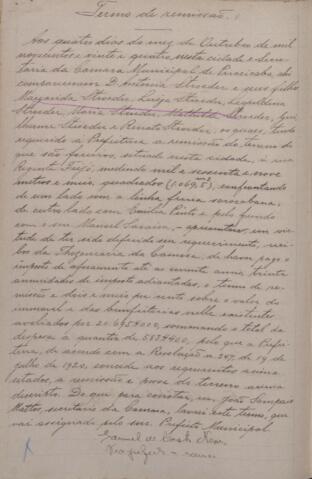 Termo de remissão.
Aos quatro dias do mez de Outubro de mil
novecentos e vinte e quatro nesta cidade e Secre-
taria da Camara Municipal de Piracicaba, ahi
compareceram D. Antonia Stroeder e seus filhos
Margarida Stroeder, Luiza Stroeder, Leopoldina
Stroeder, Maria Stroeder, Mathilde Stroeder, Gui-
lherme Stroeder e Renato Stroeder, os quaes, tendo
requerido á Prefeitura a remissão do terreno de
que são foreiros, situado nesta cidade, á rua
Regente Feijó, medindo mil e sessenta e nove
metros e meio, quadrados (1.069,5), confrontando
de um lado com a linha ferrea sorocabana;
de outro lado com Emilia Pinto e pelo fundo
com Manoel Saraiva, - apresentam, em vir-
tude de ter sido deferido seu requerimento, reci-
bos da Thezouraria da Camara, de haver pago o
imposto de aforamento até ao corrente anno, trinta
annuidades de imposto adiantadas, o termo de re-
missão e dois e meio por cento sobre o valor do
immovel e das bemfeitorias nelle existentes
avaliados por 20:695$000, sommando o total da
despesa á quantia de 583$400, pelo que a Prefei-
tura, de accordo com a Resolução n. 247, de 19 de
julho de 1920, concede aos requerentes acima
citados, a remissão e posse do terreno acima
descripto. De que para constar, eu, João Sampaio
Mattos, secretario da Camara, lavrei este termo, que
vai assignado pelo snr. Prefeito Municipal.